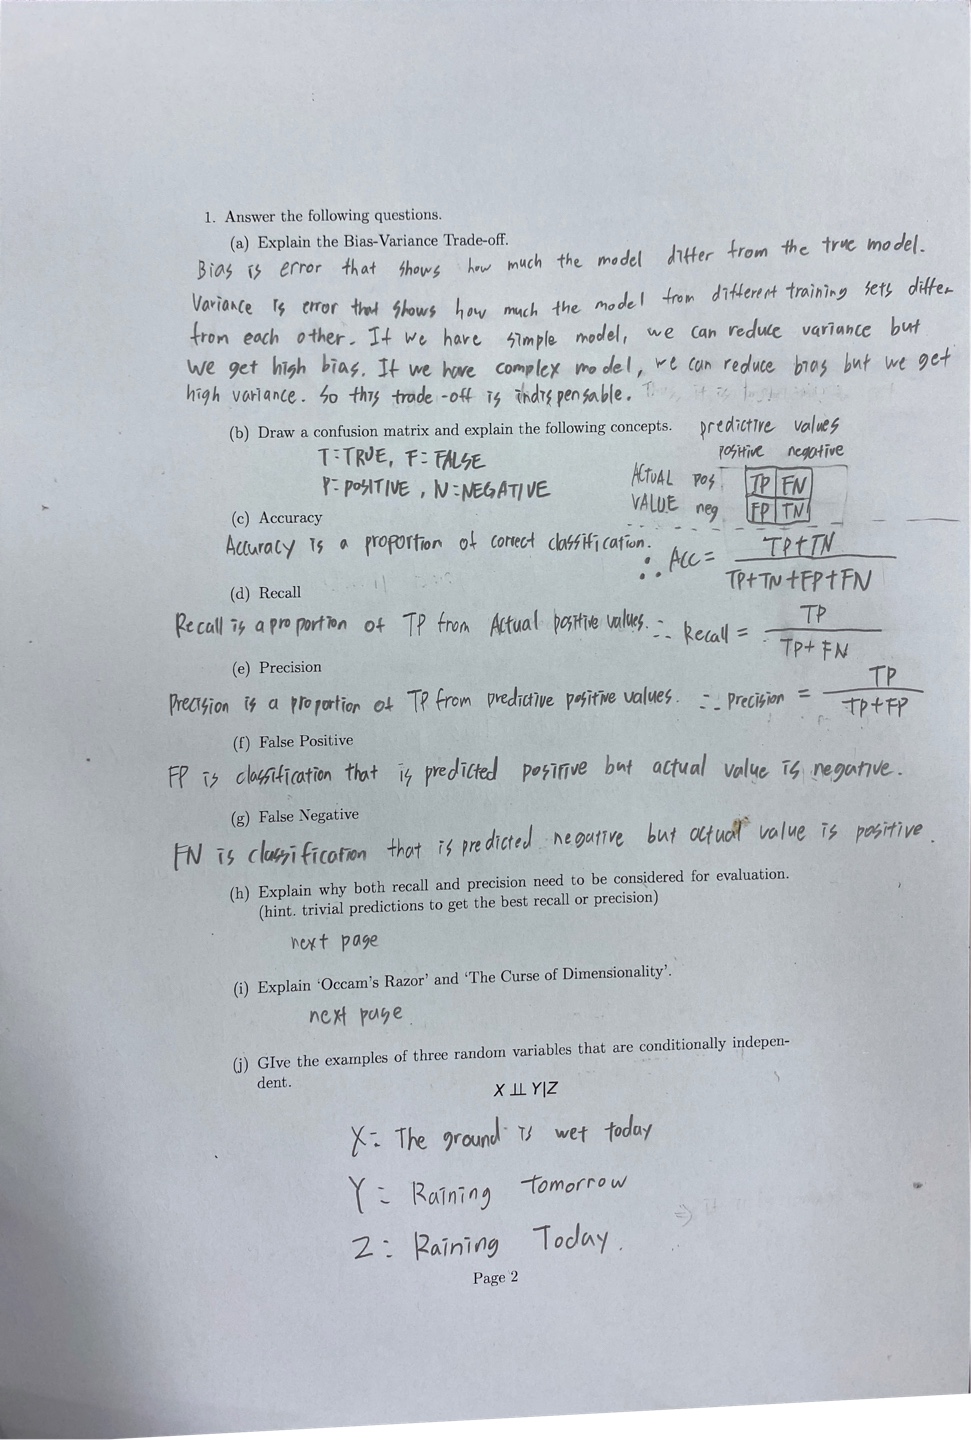 1. Answer the following questions.
(a) Explain the Bias-Variance Trade-off.
Bias is error that shows how much the model differ from the true model.
Variance is error that shows how much the model from different training sets differ
from each other. If we have simple model, we can reduce variance but
we get high bias. If we have complex model, we can reduce bias but we get
high variance. So this trade-off is indispensable.
(b) Draw a confusion matrix and explain the following concepts. predictive values
T=TRUE, F=FALSE positive negative
P=POSITIVE, N=NEGATIVE ACTUAL pos TP FN
VALUE neg FP TN
(c) Accuracy
Accuracy is a proportion of correct classification. ∴ Acc = TP+TN / TP+TN+FP+FN
(d) Recall
Recall is a proportion of TP from Actual positive values. ∴ Recall = TP / TP+FN
(e) Precision
Precision is a proportion of TP from predictive positive values. ∴ Precision = TP / TP+FP
(f) False Positive
FP is classification that is predicted positive but actual value is negative.
(g) False Negative
FN is classification that is predicted negative but actual value is positive.
(h) Explain why both recall and precision need to be considered for evaluation.
(hint. trivial predictions to get the best recall or precision)
next page
(i) Explain ‘Occam’s Razor’ and ‘The Curse of Dimensionality’.
next page
(j) GIve the examples of three random variables that are conditionally indepen-
dent.
X ⫫ Y|Z
X= The ground is wet today
Y= Raining tomorrow
Z= Raining Today.
Page 2